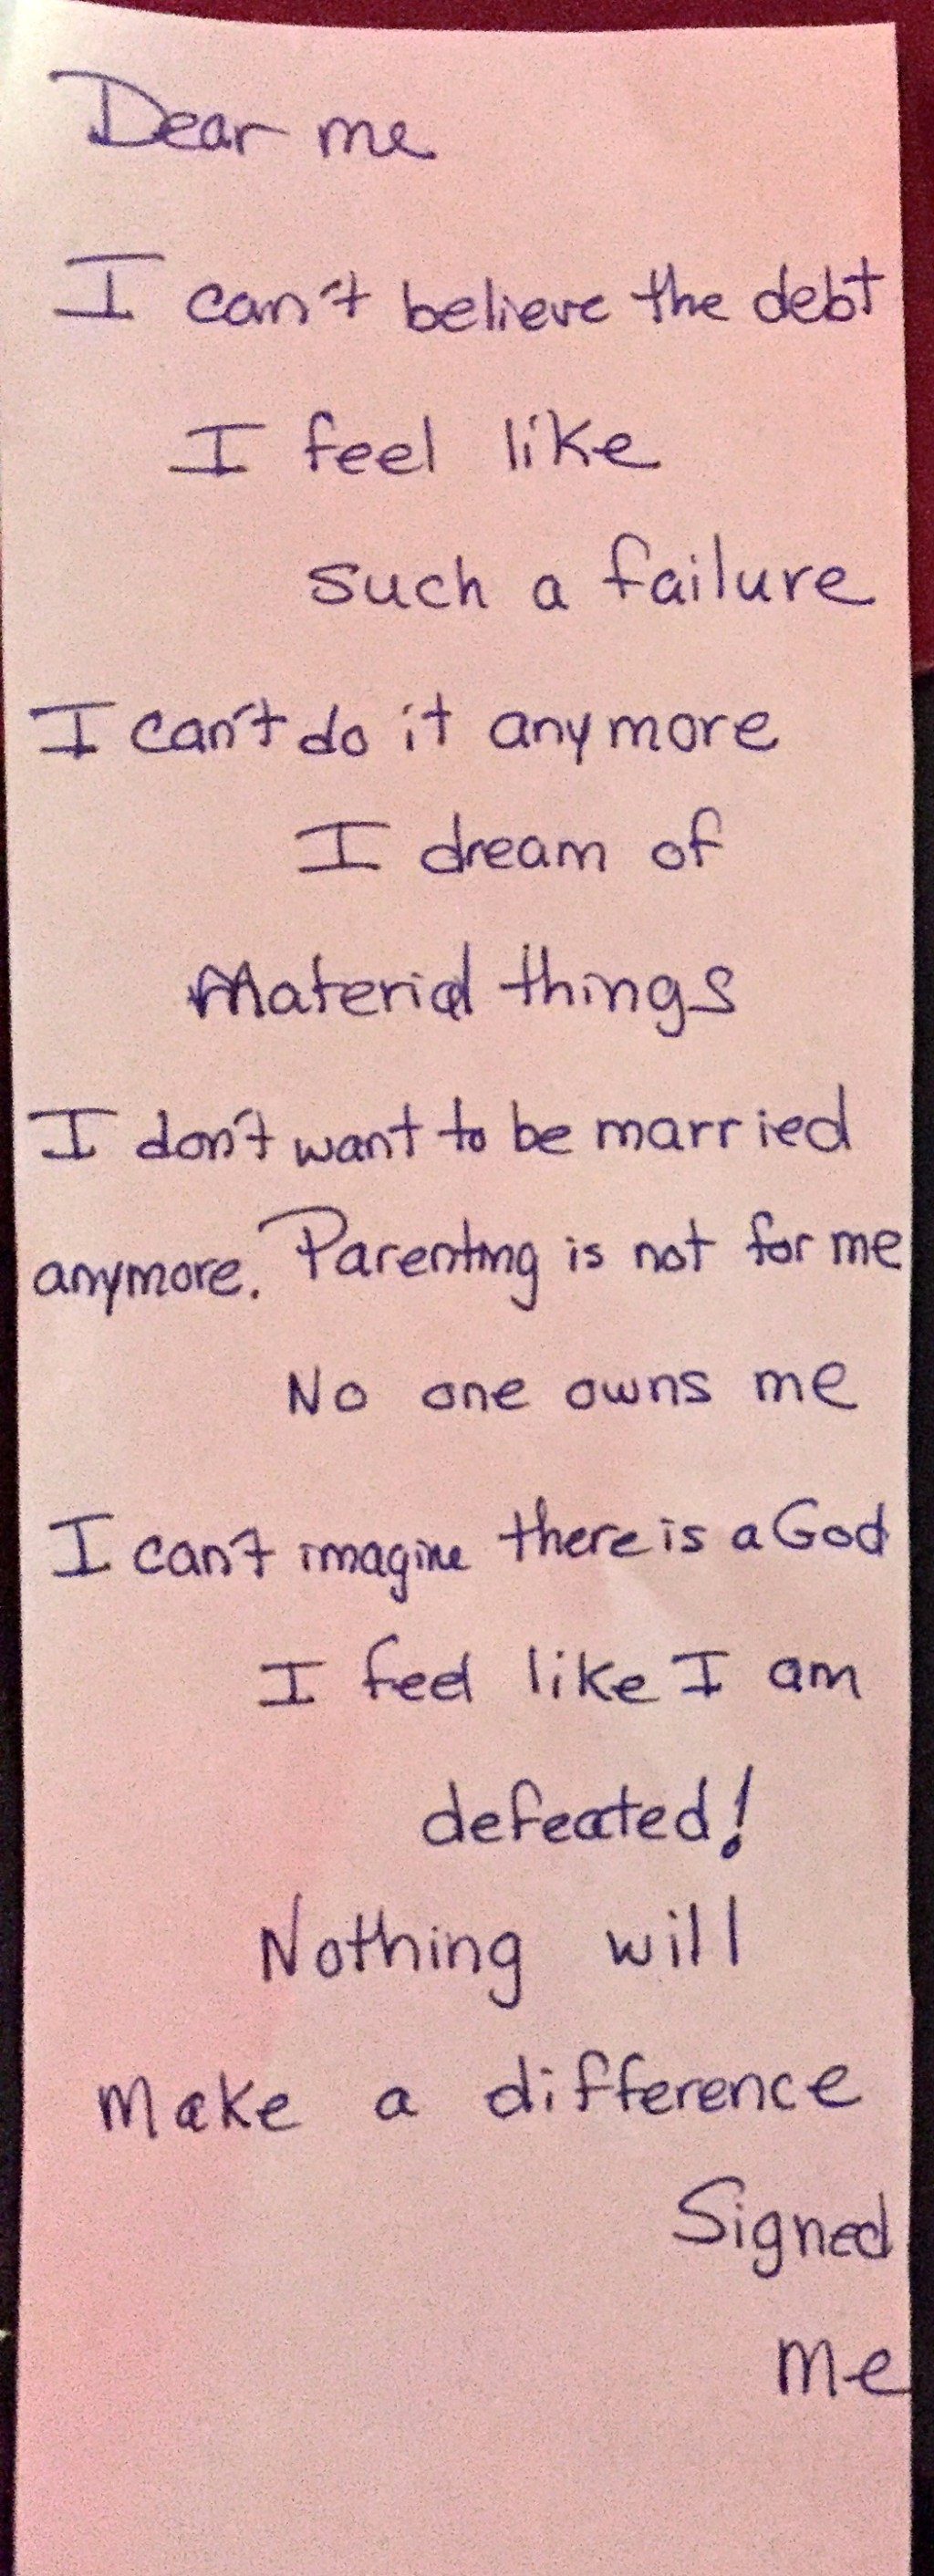 Dear me
I can't believe the debt
I feel like
such a failure
I can't do it anymore
I dream of
Material things
I don't want to be married
anymore. Parenting is not for me
No one owns me
I can't imagine there is a God
I feel like I am
defeated!
Nothing will
make a difference
Signed
me